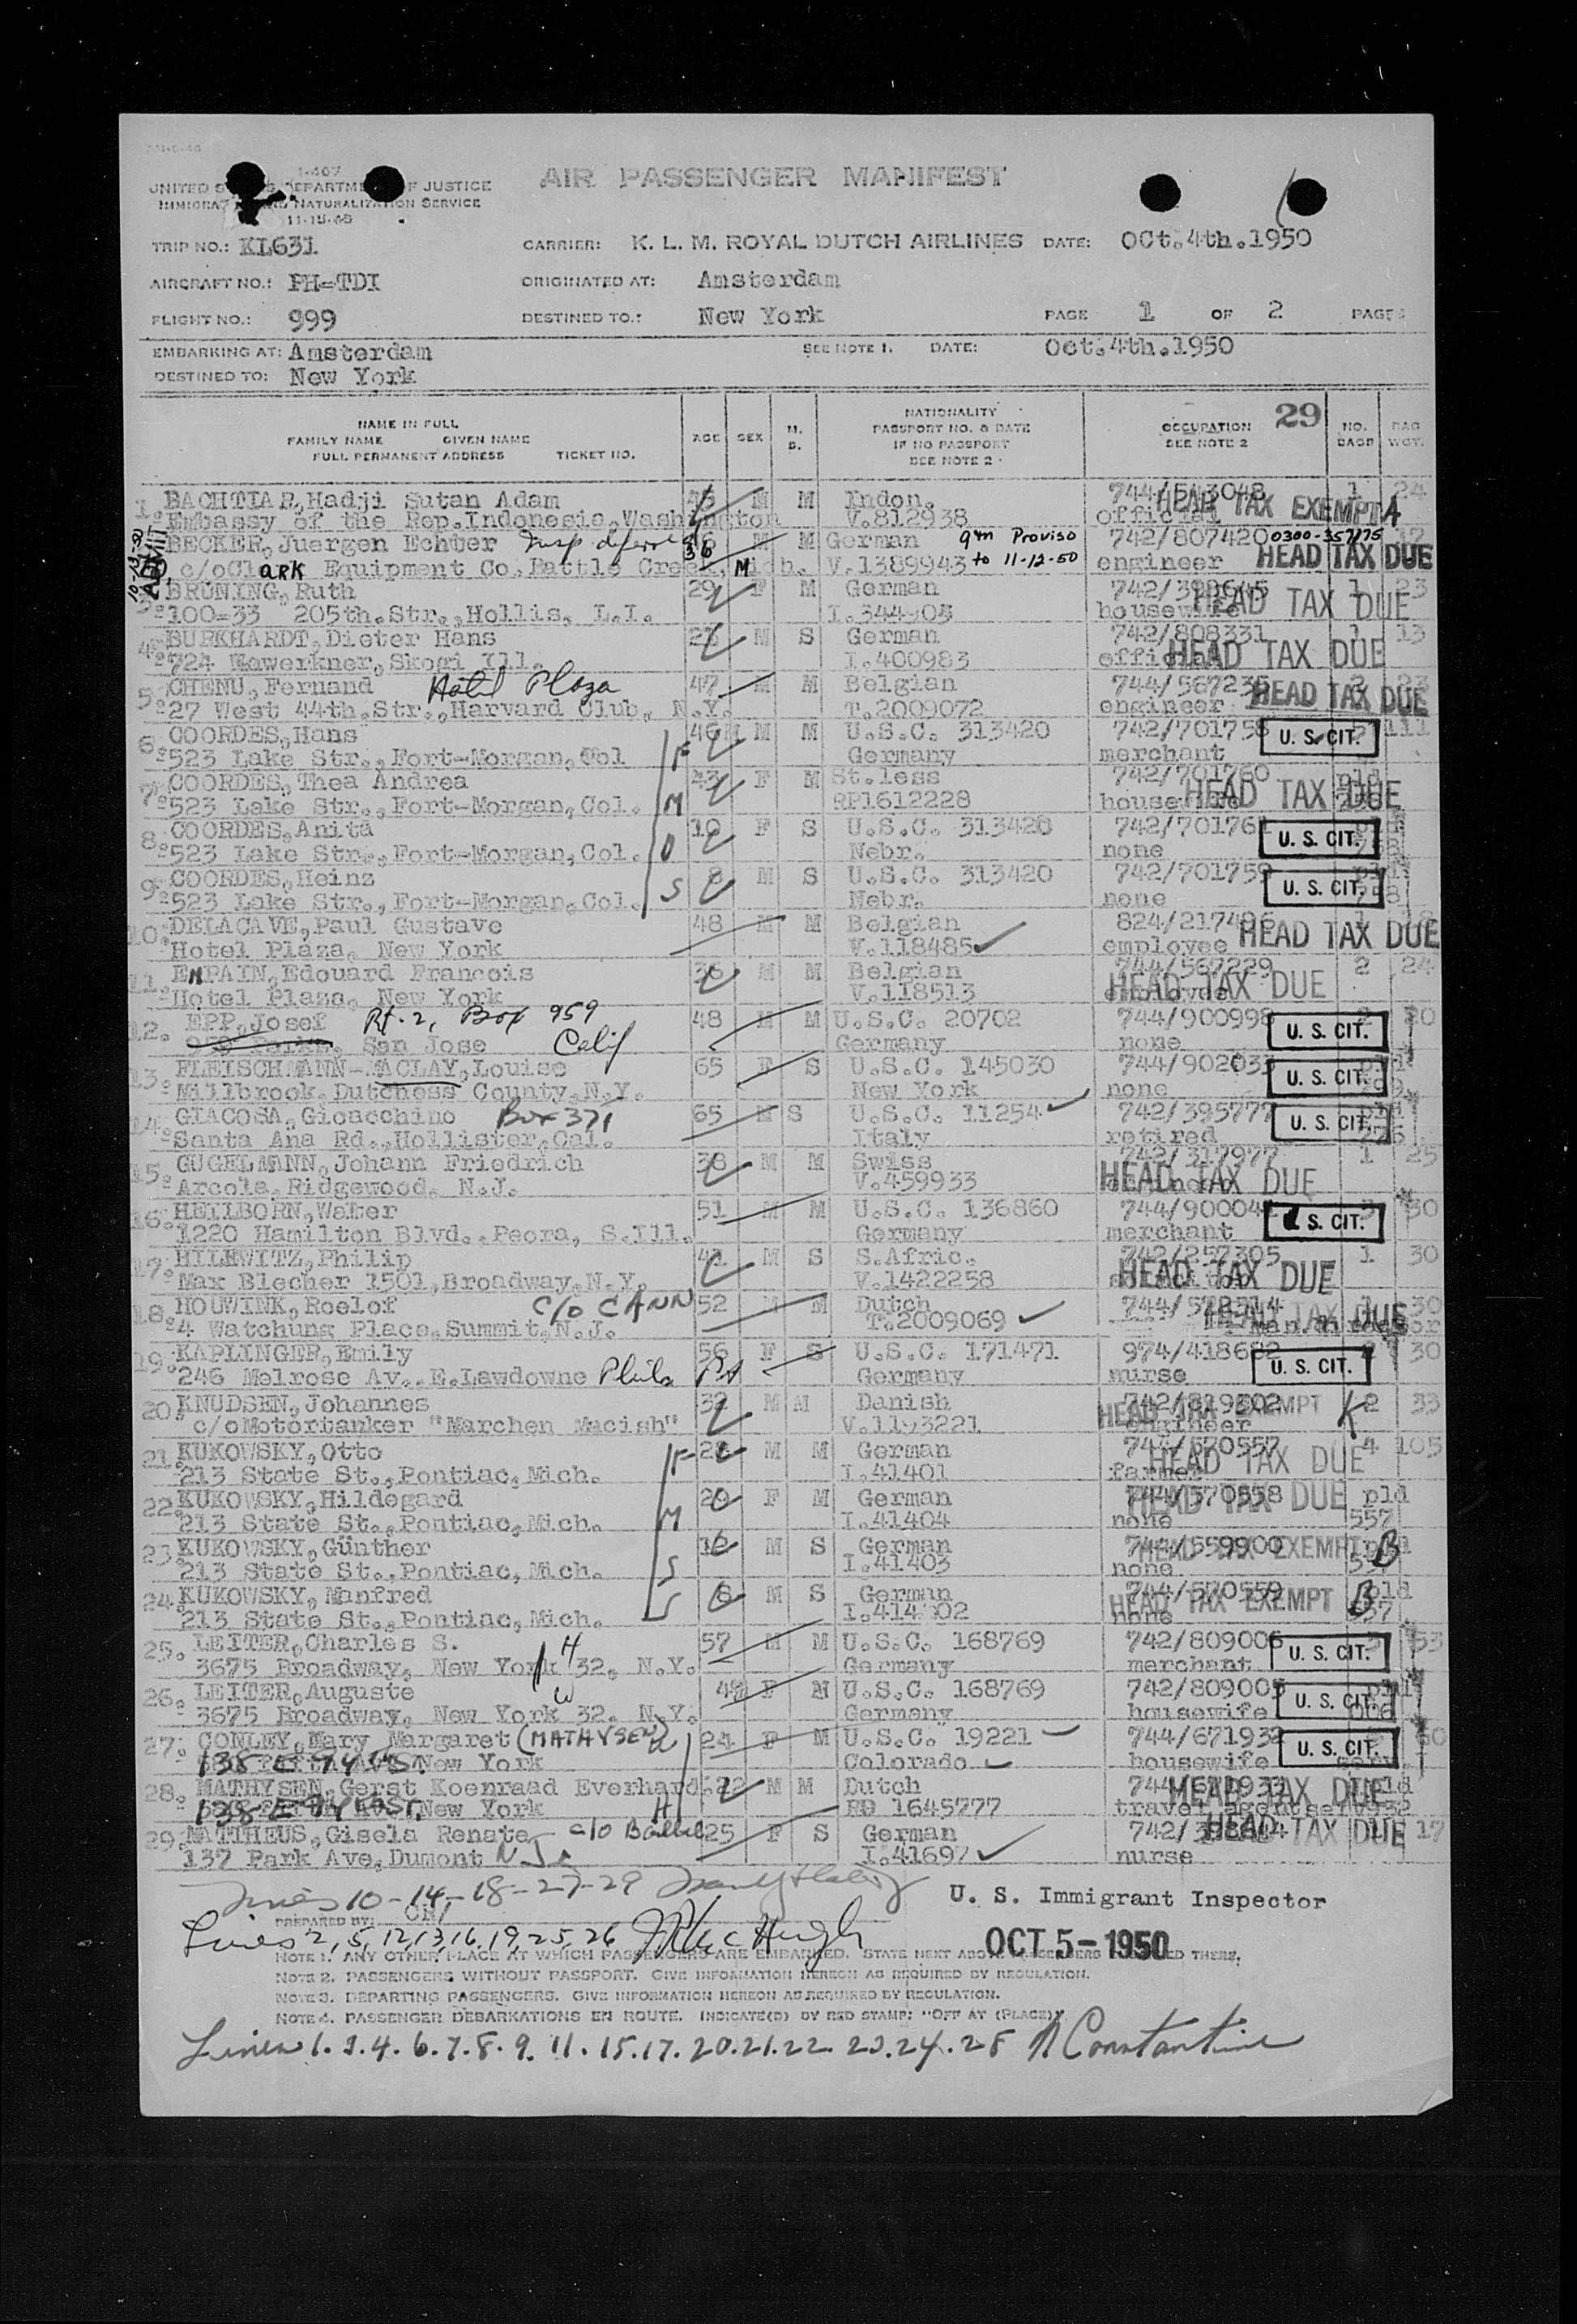 I-407
UNITED STATES DEPARTMENT OF JUSTICE
IMMIGRATION AND NATURALIZATION SERVICE
11-15-46
AIR PASSENGER MANIFEST
TRIP NO.: KL631 CARRIER: K. L. M. ROYAL DUTCH AIRLINES DATE: Oct.4th.1950
AIRCRAFT NO.: PH-TDI ORIGINATED AT: Amsterdam
FLIGHT NO.: 999 DESTINED TO.: New York PAGE 1 OF 2 PAGES
EMBARKING AT: Amsterdam SEE NOTE 1. DATE: Oct.4th.1950
DESTINED TO: New York
NAME IN FULL
FAMILY NAME GIVEN NAME
FULL PERMANENT ADDRESS TICKET NO.
AGE SEX M. S.
NATIONALITY
PASSPORT NO. & DATE
IF NO PASSPORT
SEE NOTE 2
OCCUPATION 29
SEE NOTE 2
NO. BAGS BAG WGT.
1. BACHTIAR,Hadji Sutan Adam M M Indon. 1 24
Embassy of the Rep.Indonesia,Washington V.812938 official HEAD TAX EXEMPT A
10-13-50 ADMIT
BECKER, Juergen Echter Insp deferred 36 M M German 9th Proviso 742/807420 0300-357175 17
c/oClark Equipment Co.Battle Creek, Mich. V.1389943 to 11-12-50 engineer HEAD TAX DUE
BRÜNING, Ruth 29 F M German 742/398645 1 23
100-33 205th.Str.,Hollis, L.I. I.344505 housewife HEAD TAX DUE
4. BURKHARDT,Dieter Hans M S German 742/808331 1 13
724 Wawerkner,Skogi Ill. I.400983 official HEAD TAX DUE
5. CHENU,Fernand Hotel Plaza 47 M M Belgian 744/567235 2 23
27 West 44th.Str.,Harvard Club, N.Y. T.2009072 engineer HEAD TAX DUE
6. COORDES,Hans 46 M M U.S.C. 313420 742/701758 U. S. CIT. 111
523 Lake Str.,Fort-Morgan,Col F Germany merchant
7. COORDES,Thea Andrea 43 F M St.less 742/701760 pld
523 Lake Str.,Fort-Morgan,Col. M RP1612228 housewife HEAD TAX DUE
8. COORDES,Anita F S U.S.C. 313420 742/701761 U. S. CIT.
523 Lake Str.,Fort-Morgan,Col. D Nebr. none
9. COORDES,Heinz 8 M S U.S.C. 313420 742/701759 U. S. CIT.
523 Lake Str.,Fort-Morgan,Col. S Nebr. none 758
10. DELACAVE,Paul Gustave 48 M M Belgian 824/217496 1
Hotel Plaza, New York V.118485 employee HEAD TAX DUE
11. EMPAIN,Edouard Francois M M Belgian 744/567229 2 24
Hotel Plaza, New York V.118513 employee HEAD TAX DUE
12. EPP,Josef Rt. 2, Box 959 48 M M U.S.C. 20702 744/900998 20
San Jose Calif Germany none U. S. CIT.
13. FLEISCHMANN-MACLAY,Louise 65 F S U.S.C. 145030 744/902033
Millbrook,Dutchess County,N.Y. New York none U. S. CIT.
14. GIACOSA,Gioacchino Box 371 65 M S U.S.C. 11254 742/395777
Santa Ana Rd.,Hollister,Cal. Italy retired U. S. CIT.
15. GUGELMANN,Johann Friedrich 38 M M Swiss 742/317977 1 25
Arcola,Ridgewood, N.J. V.459933 HEAD TAX DUE
16. HEILBORN,Walter 51 M M U.S.C. 136860 30
1220 Hamilton Blvd.,Peora, S.Ill. Germany merchant U. S. CIT.
17. HILEWITZ,Philip 41 M S S.Afric. 742/257305 1 30
Max Blecher 1501,Broadway,N.Y. V.1422258 HEAD TAX DUE
18. HOUWINK,Roelof c/o CANN 52 M M Dutch 1 30
4 Watchung Place,Summit,N.J. T.2009069 HEAD TAX DUE
19. KAPLINGER,Emily 56 F S U.S.C. 171471 974/418682 30
246 Melrose Av.,E.Lawdowne Phila Pa Germany nurse U. S. CIT.
20. KNUDSEN,Johannes 32 M M Danish 742/819302 2 33
c/oMotortanker "Marchen Macish" V.1193221 engineer HEAD TAX EXEMPT K
21. KUKOWSKY,Otto F M M German 744/570557 4 105
213 State St.,Pontiac,Mich. I.41401 farmer HEAD TAX DUE
22. KUKOWSKY,Hildegard F M German 744/570558 pld
213 State St.,Pontiac,Mich. M I.41404 none 557 HEAD TAX DUE
23. KUKOWSKY,Günther M S German 744/559900
213 State St.,Pontiac,Mich. S I.41403 none HEAD TAX EXEMPT B
24. KUKOWSKY,Manfred M S German 744/570559 pld
213 State St.,Pontiac,Mich. S none 557 HEAD TAX EXEMPT B
25. LEITER,Charles S. 57 M M U.S.C. 168769 742/809006 53
3675 Broadway, New York 32, N.Y. H Germany merchant U. S. CIT.
26. LEITER,Auguste F M U.S.C. 168769 742/809005
3675 Broadway, New York 32, N.Y. W Germany housewife U. S. CIT.
27. CONLEY,Mary Margaret (MATHYSEN) 24 F M U.S.C. 19221 744/671932 60
138 E 74 St New York W Colorado housewife U. S. CIT.
28. MATHYSEN,Gerst Koenraad Everhard M M Dutch 744/671933 pld
New York H RD 1645777 travel agent HEAD TAX DUE
29. MATTHEUS,Gisela Renate 25 F S German 17
137 Park Ave,Dumont N.J. I.41697 nurse HEAD TAX DUE
Lines 10-14-18-27-29
U. S. Immigrant Inspector
PREPARED BY:
Lines 2, 5, 12, 13, 16, 19, 25, 26
OCT 5-1950
NOTE 1. ANY OTHER PLACE AT WHICH PASSENGERS ARE EMBARKED. STATE NEXT ABOVE
NOTE 2. PASSENGERS WITHOUT PASSPORT. GIVE INFORMATION HEREON AS REQUIRED BY REGULATION.
NOTE 3. DEPARTING PASSENGERS. GIVE INFORMATION HEREON AS REQUIRED BY REGULATION.
NOTE 4. PASSENGER DEBARKATIONS EN ROUTE. INDICATE(D) BY RED STAMP: "OFF AT (PLACE)"
Lines 1. 3. 4. 6. 7. 8. 9. 11. 15. 17. 20. 21. 22. 23. 24. 28 Constantine